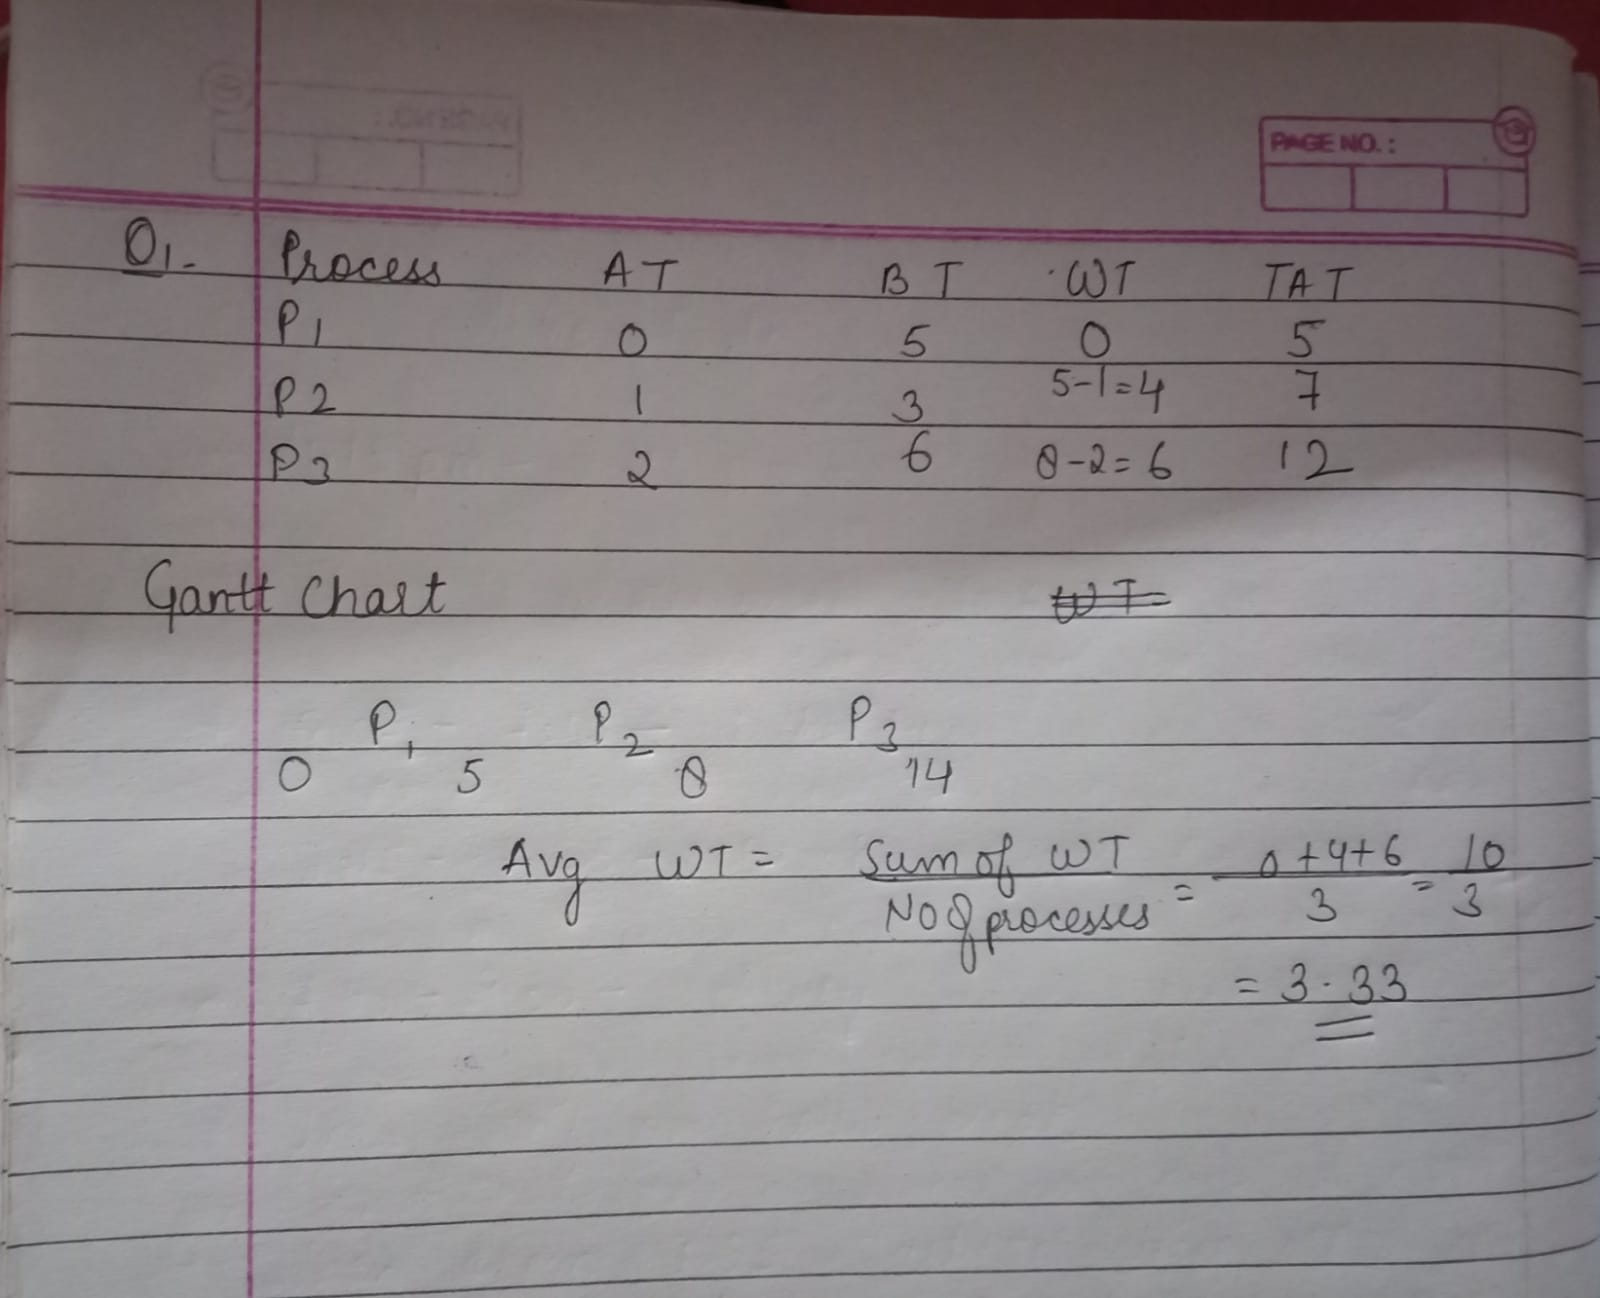 PAGE NO.:
Q1- Process AT BT WT TAT
P1 0 5 0 5
P2 1 3 5-1=4 7
P3 2 6 8-2=6 12
Gantt Chart WT=
P1 P2 P3
0 5 8 14
Avg WT = Sum of WT / No of processes = 0+4+6 / 3 = 10 / 3
= 3.33